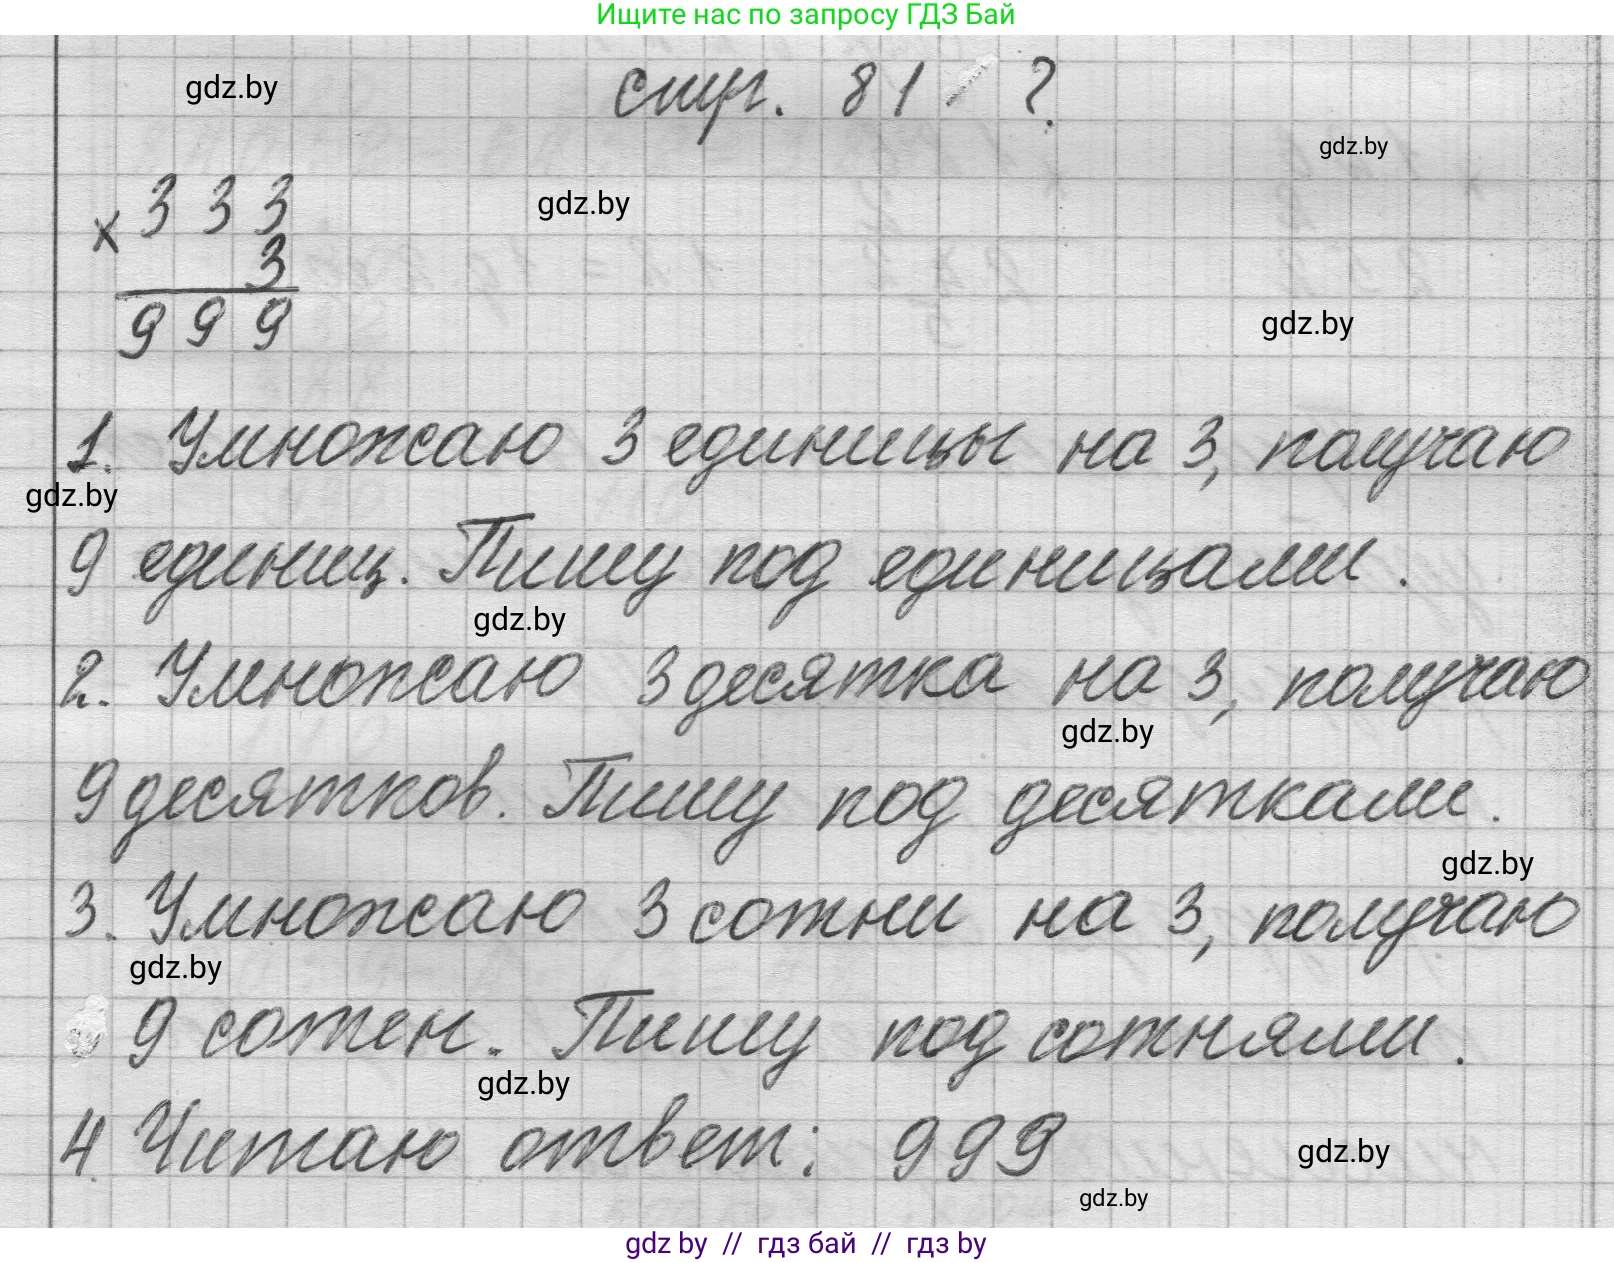 Ищите нас по запросу ГДЗ Бай
gdz.by
стр. 81 ?
gdz.by
× 333
gdz.by
3
999
gdz.by
1. Умножаю 3 единицы на 3, получаю
gdz.by
9 единиц. Пишу под единицами.
gdz.by
2. Умножаю 3 десятка на 3, получаю
gdz.by
9 десятков. Пишу под десятками.
gdz.by
3. Умножаю 3 сотни на 3, получаю
gdz.by
9 сотен. Пишу под сотнями.
gdz.by
4. Читаю ответ: 999
gdz.by
gdz.by
gdz by // гдз бай // гдз by